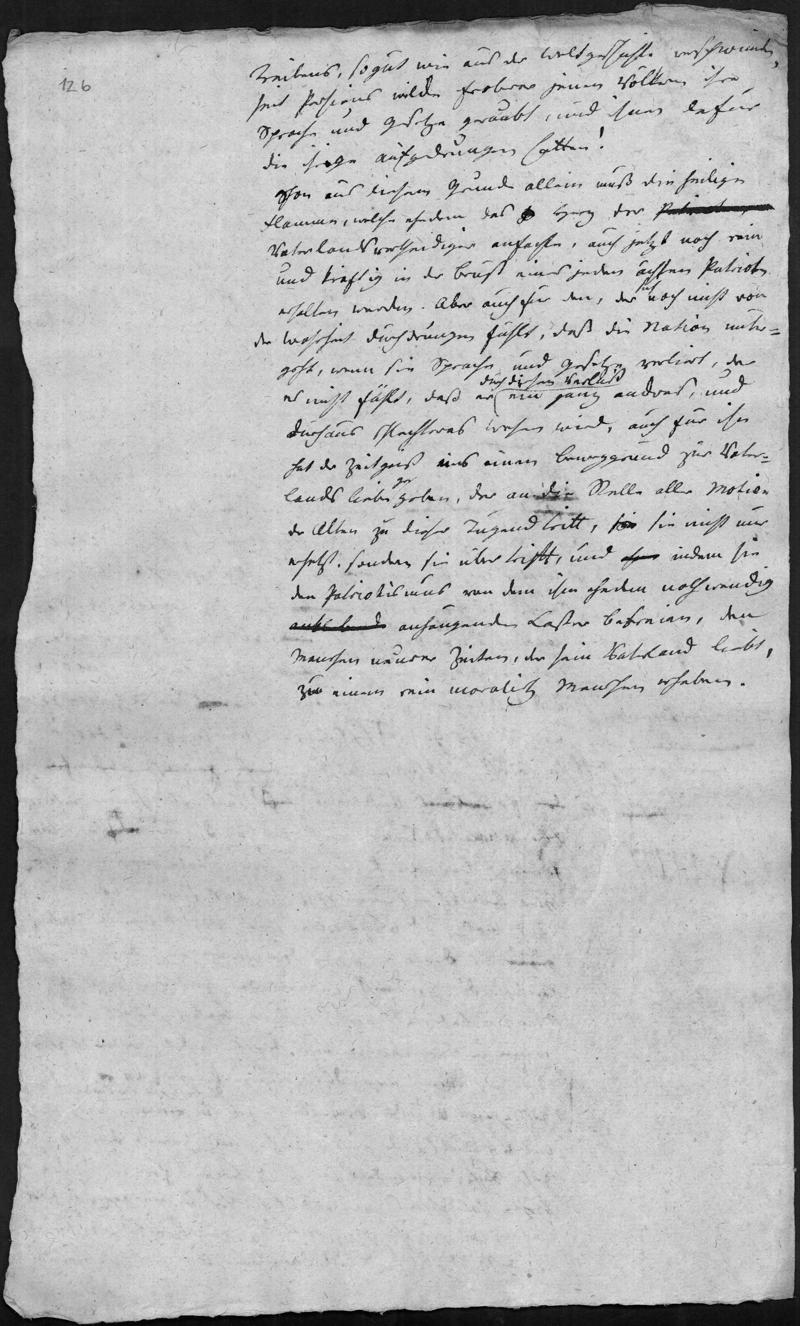 126
Treibens, so gut wie aus der Weltgeschichte verschwinden,
seit Persiens wilde Eroberer jenen Völkern ihre
Sprache und Gesetze geraubt, und ihnen dafür
die ihrige aufgedrungen hatten!
Schon aus diesem Grunde allein muß die heilige
Flamme, welche ehedem das Herz der
Vaterlandsvertheidiger anfachte, auch jetzt noch rein
und kräftig in der Brust eines jeden ächten Patrioten
erhalten werden. Aber auch für den, der sich noch nicht von
der Wahrheit durchdrungen fühlt, daß die Nation unter=
geht, wenn sie Sprache und Gesetze verliert, der
es nicht fühlt, daß er durch diesen Verlust ein ganz andres, und
durchaus schlechteres Wesen wird, auch für ihn
hat der Zeitgeist uns einen Beweggrund zur Vater=
landsliebe gegeben, der an die Stelle aller Motive
der Alten zu dieser Tugend tritt, sie nicht nur
ersetzt, sondern sie übertrifft, und indem sie
den Patriotismus von dem ihm ehedem nothwendig
anhängenden Laster befreien, den
Menschen neuerer Zeiten, der sein Vaterland liebt,
zu einem rein moralisch Menschen erheben.